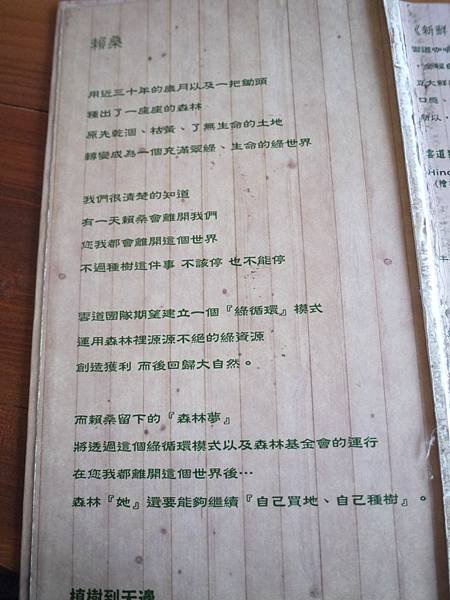 賴桑
用近三十年的歲月以及一把鋤頭
種出了一座座的森林
原先乾涸、枯黃、了無生命的土地
轉變成為一個充滿翠綠、生命的綠世界
我們很清楚的知道
有一天賴桑會離開我們
您我都會離開這個世界
不過種樹這件事 不該停 也不能停
雲道團隊期望建立一個『綠循環』模式
運用森林裡源源不絕的綠資源
創造獲利 而後回歸大自然。
而賴桑留下的『森林夢』
將透過這個綠循環模式以及森林基金會的運行
在您我都離開這個世界後…
森林『她』還要能夠繼續『自己買地、自己種樹』。
植樹到天邊
《新鮮
雲道咖啡
豆大鮮
口感、
所以，
雲道
Hino